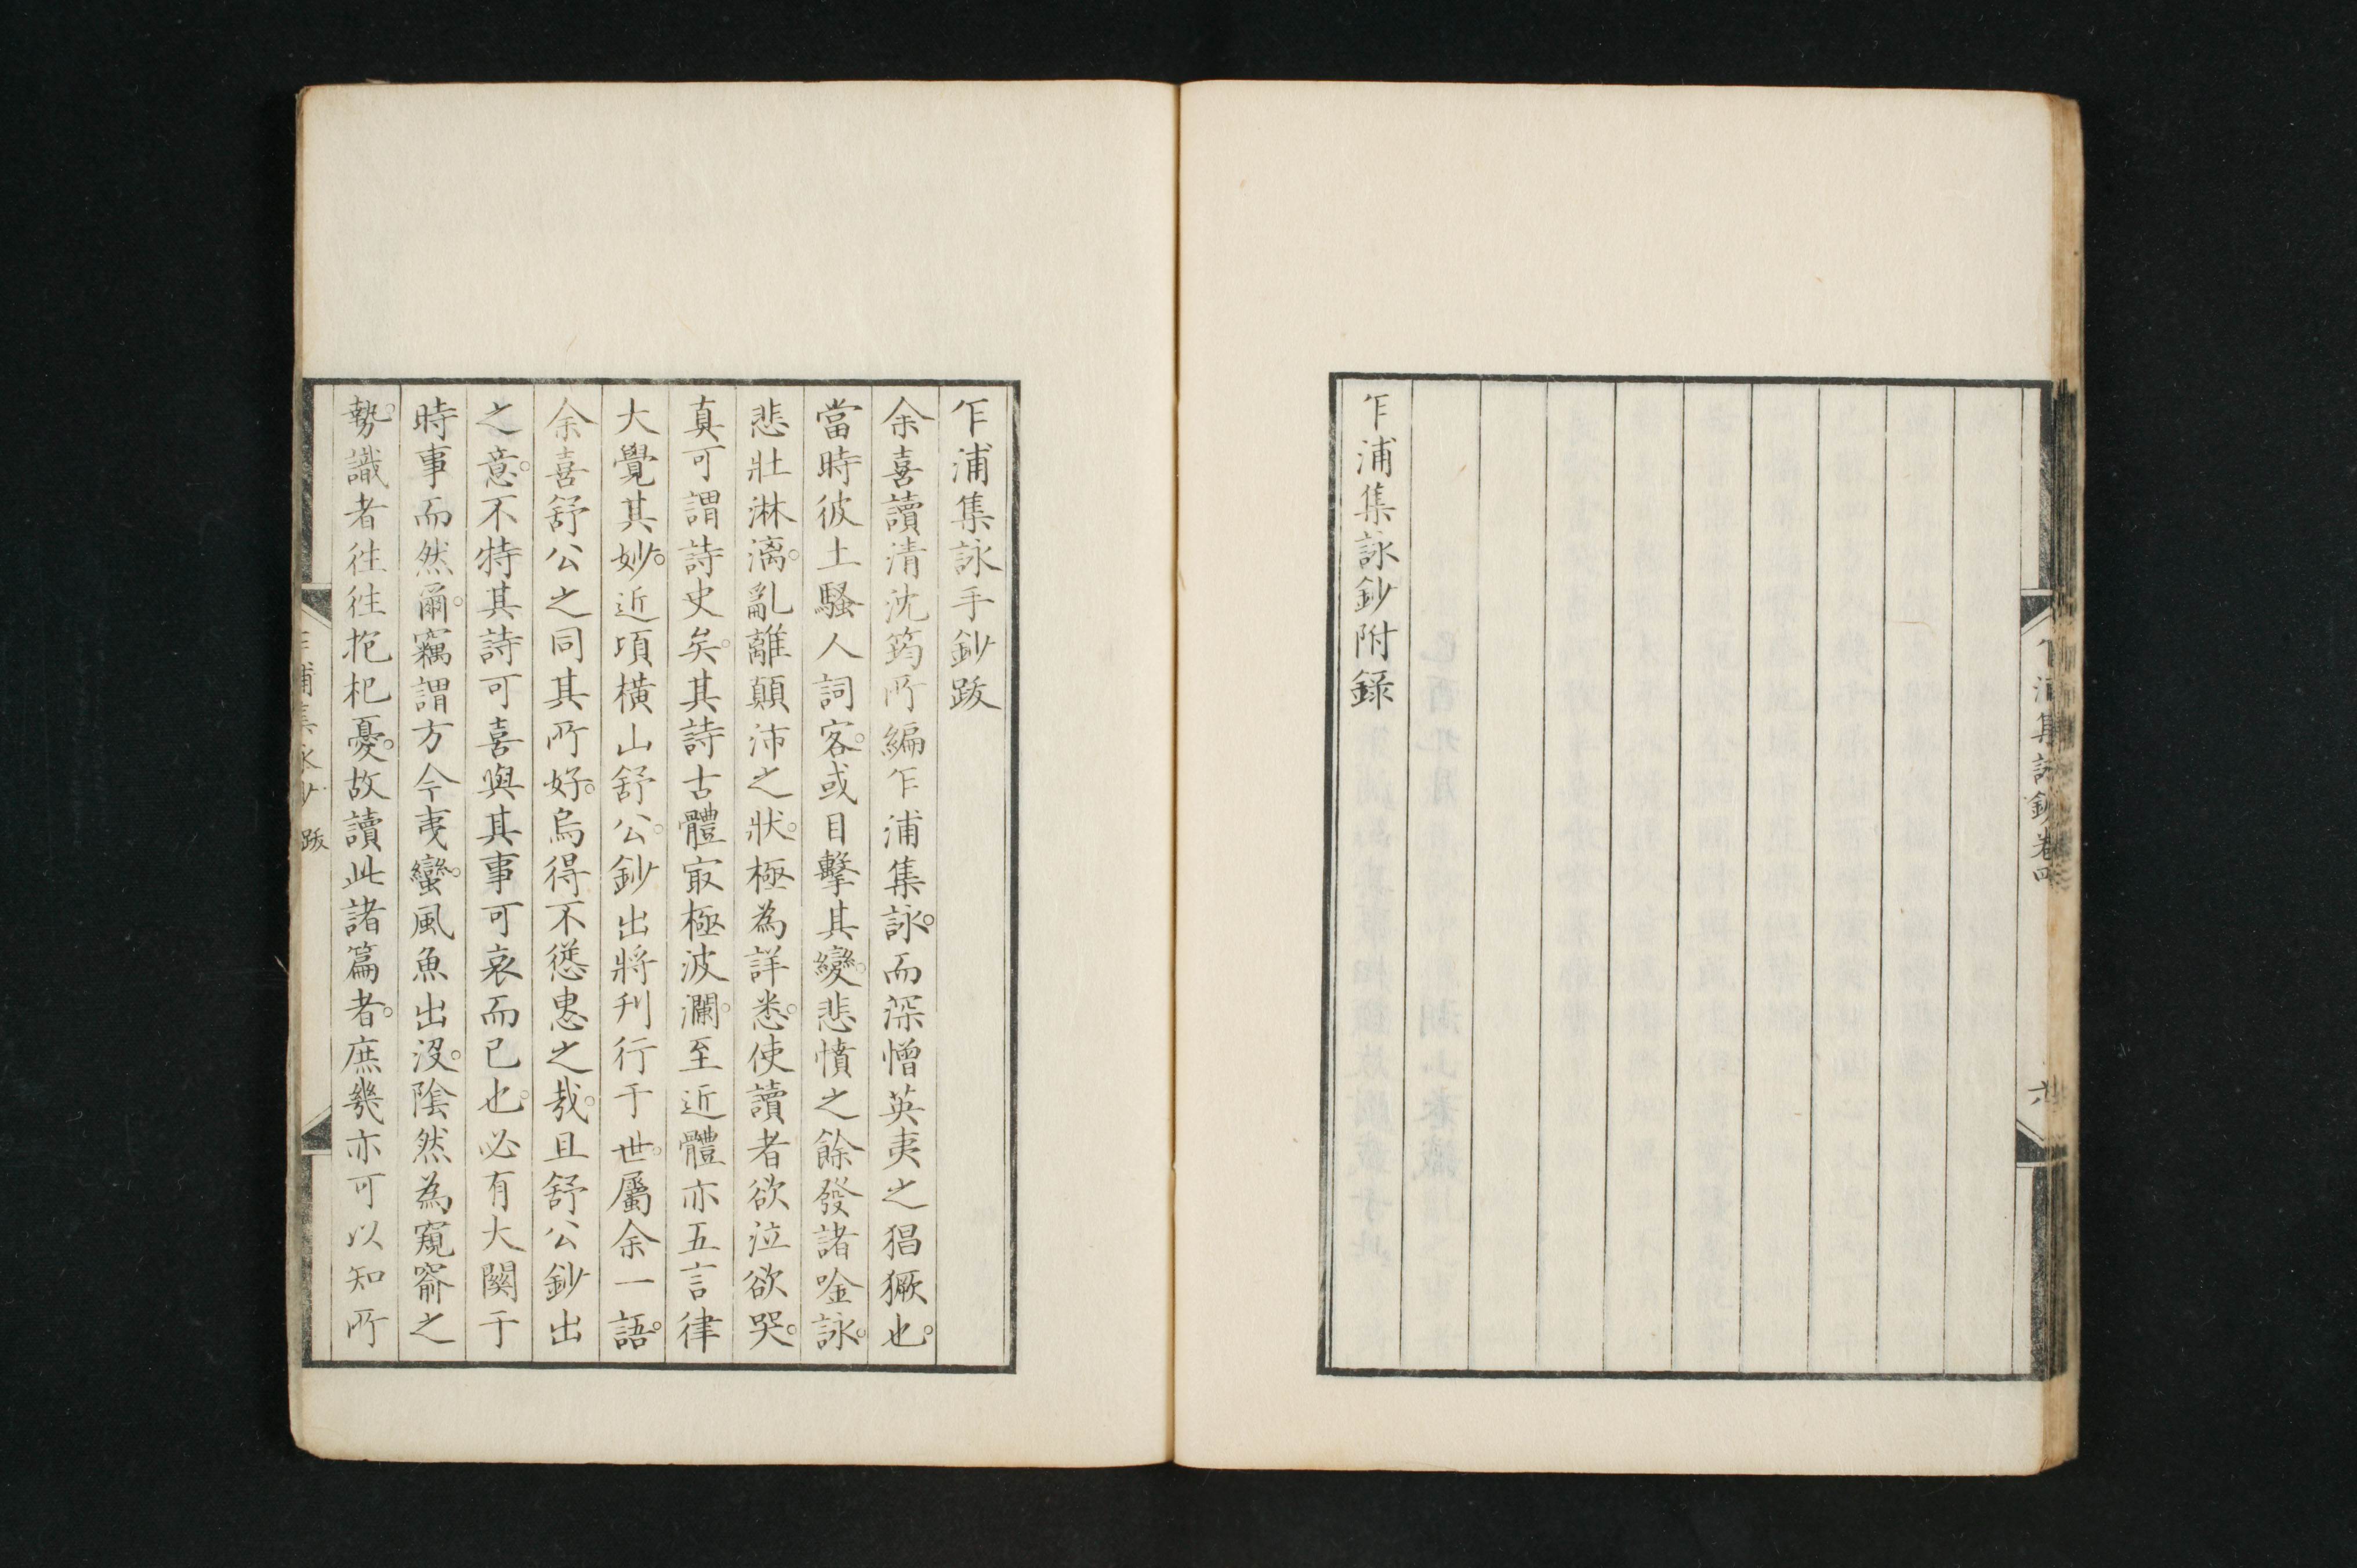 乍浦集詠鈔卷四
乍浦集詠鈔附錄
乍浦集詠手鈔跋
余喜讀清沈筠所編乍浦集詠。而深憎英夷之猖獗也。
當時彼土騷人詞客。或目擊其變。悲憤之餘發諸唫詠。
悲壯淋漓。亂離顛沛之狀。極為詳悉。使讀者欲泣欲哭。
真可謂詩史矣。其詩古體㝡極波瀾。至近體亦五言律
大覺其妙。近頃橫山舒公。鈔出將刋行于世。屬余一語。
余喜舒公之同其所好。烏得不慫恿之哉。且舒公鈔出
之意。不特其詩可喜與其事可哀而已也。必有大關于
時事而然爾。竊謂方今夷蠻。風魚出沒。陰然為窺窬之
勢。識者往往抱杞憂。故讀此諸篇者。庶幾亦可以知所
乍浦集詠鈔 跋